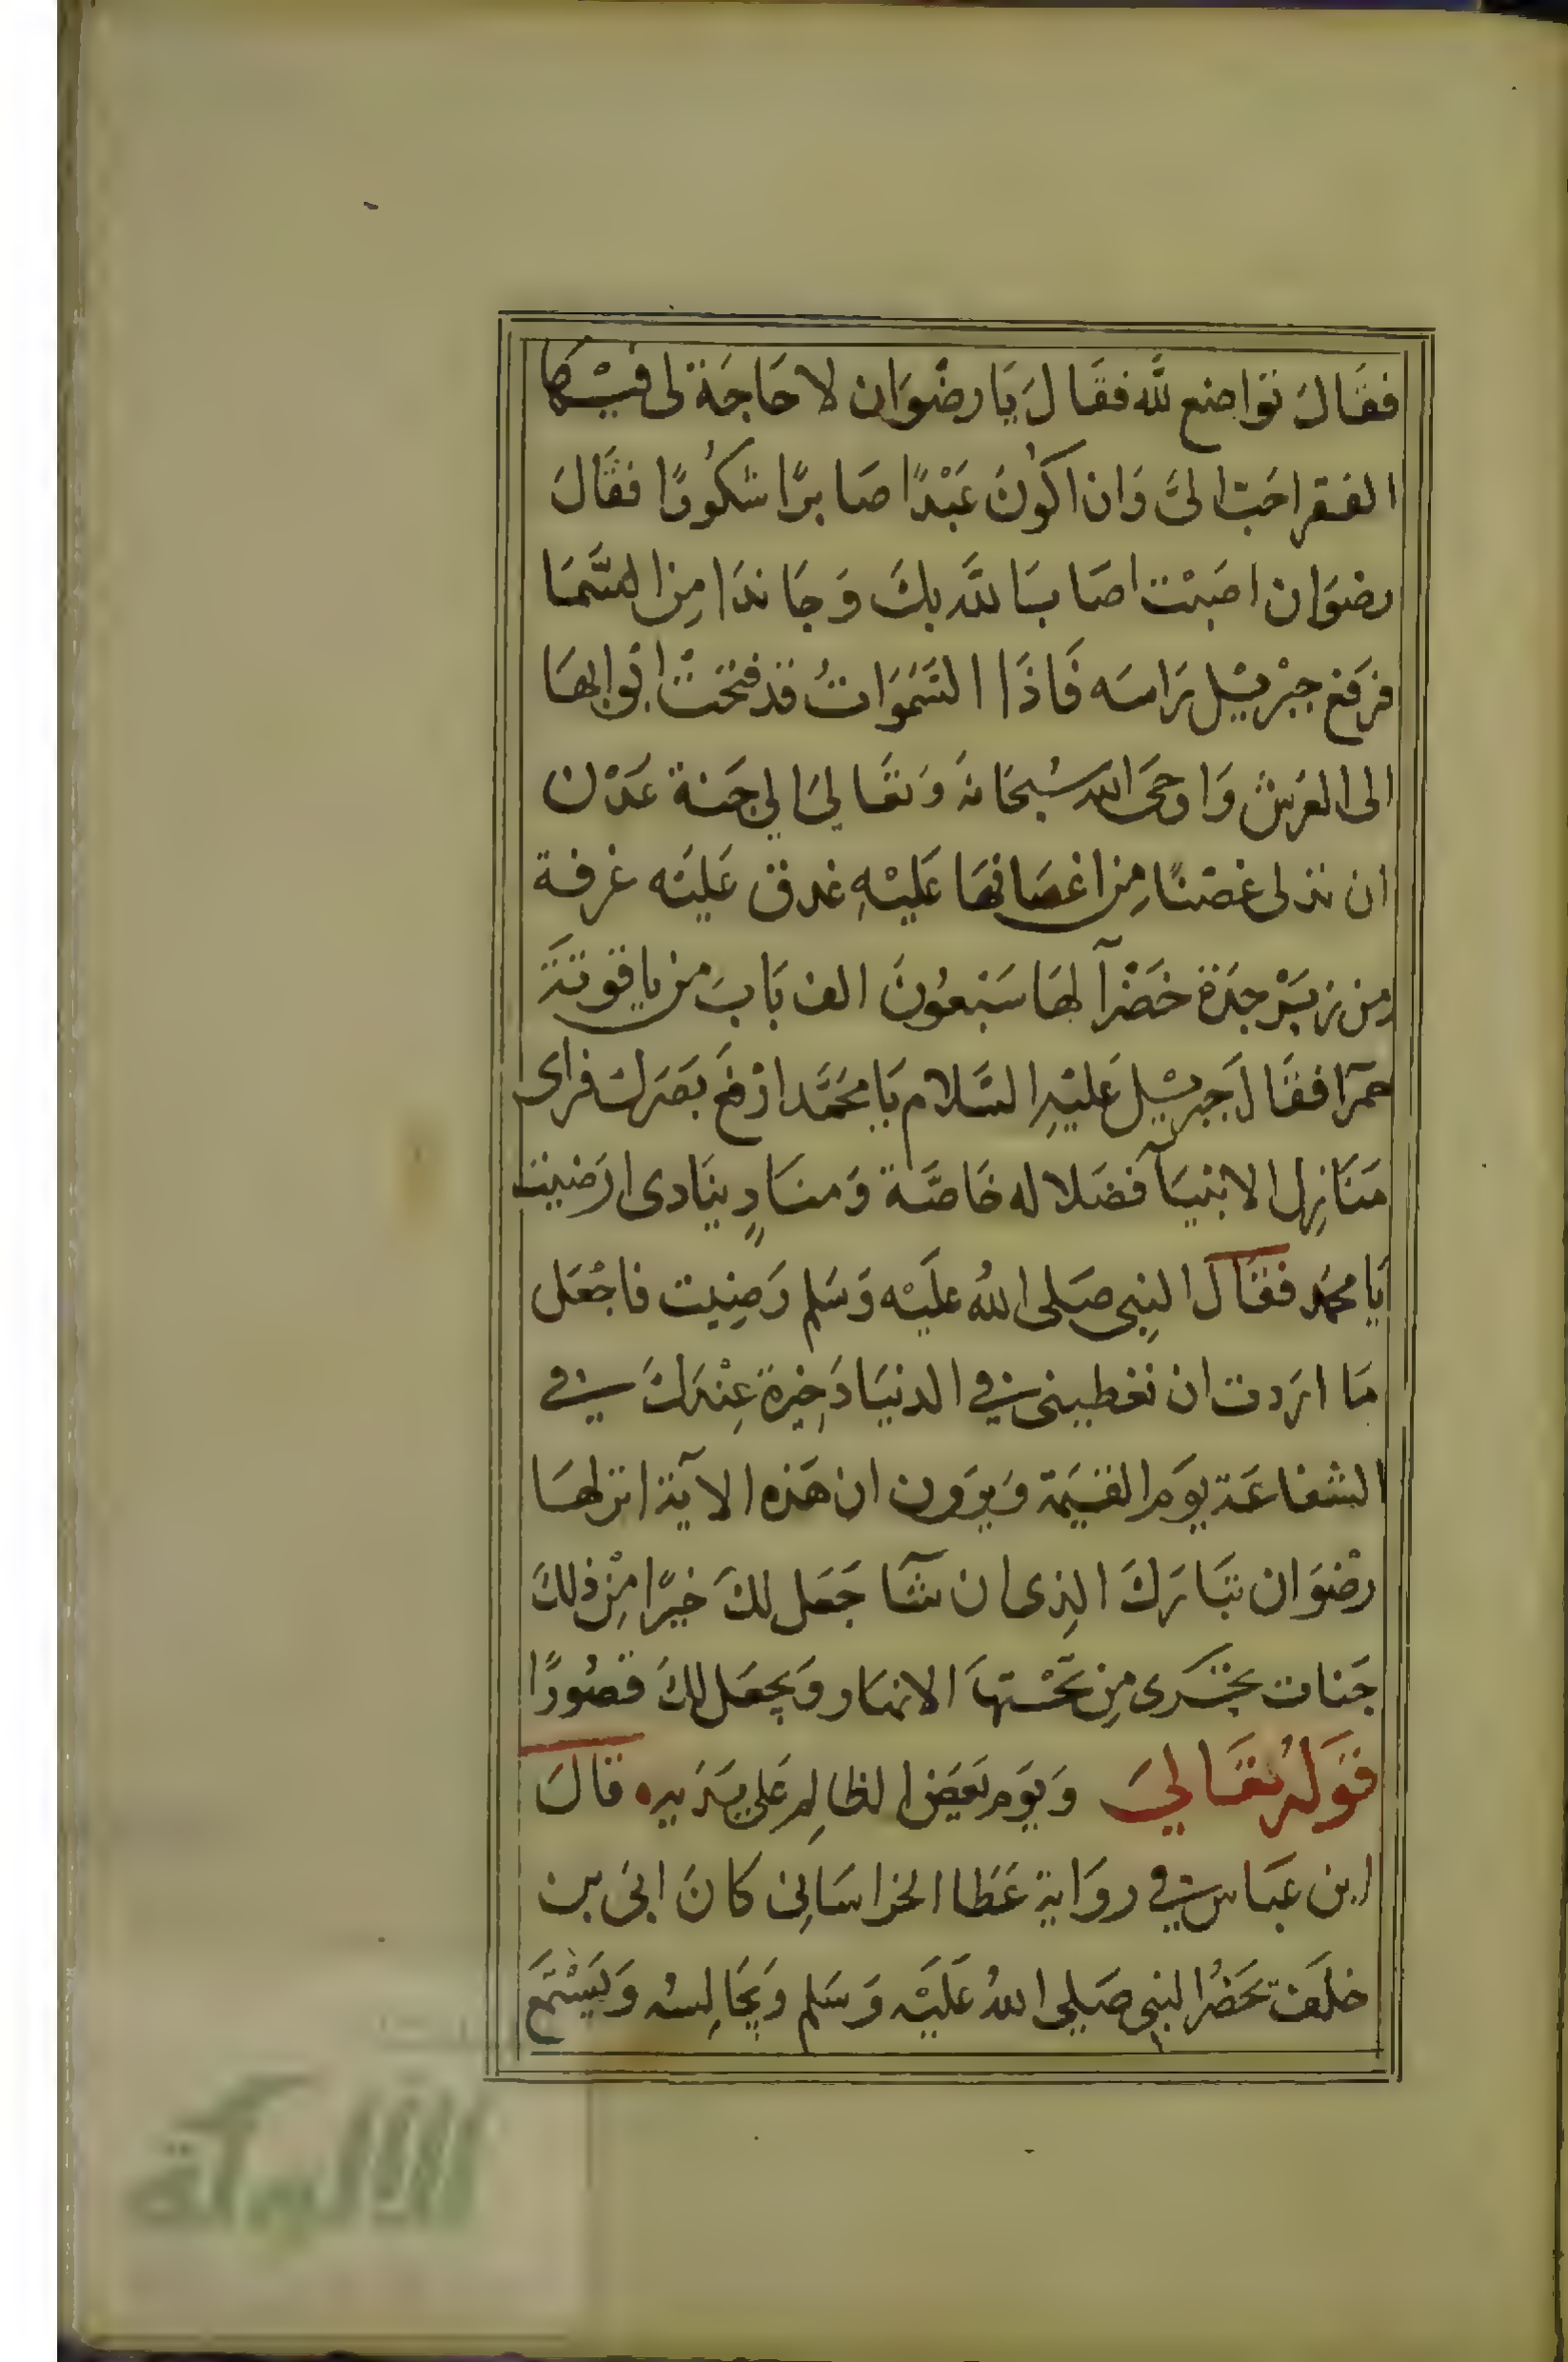 فقال تواضع لله فقال يا رضوان لا حاجة لى فيها
الفقر احب الىَّ وَان اكونَ عَبْدًا صَابرًا شكُورًا فقَالَ
رضوَان اصَبْت اصَابَ اللَّه بكَ وَجَا ندَا مِن السَّمَا
فرَفعَ جبْريْل رَاسَه فَاذَا السَّمَوَاتُ قد فتحَتْ ابوابهَا
الى العَرش وَاوحَى الله سُبحَانهَ وَتعَالىَ الى جَنة عَدْن
ان تدلى غصْنًا مِن اغصَانهَا عَليْهِ عذق عَليْه غرفة
من زبَرْجدَة خَضْرآ لهَا سَبْعوُنَ الف بَابَ من ياقوتةَ
حمرَآ فقَالَ جَبريْل عَليْهِ السَّلام يَا محَمَّد ارْفعَ بَصَرك فرَاى
مَنَازِل الانبيَآ فضَلا له خَاصَّة وَمنَادٍ ينَادى ارَضيت
يَا محمَد فقَالَ النبِى صَلى اللهُ عليَه وَسَلم رَضِيت فاجْعَل
مَا ارَدت ان تعْطينى فى الدنيَا ذَخِيرَة عِنْدكَ فى
الشفاعَة يوَم القيَمة وَيرَون ان هَذه الآية انزلهَا
رضْوَان تبَارَكَ الذِى ان شَآ جَعَل لكَ خيرًا مِنْ ذلكَ
جَنات تجْرى مِن تَحْتهاَ الانهَار وَيجعَل لكَ قصُورًا
قوَله تعَالىَ وَيوَم يَعَض الظالِم عَلى يدَيه قالَ
ابن عبَاس فى روَاية عَطا الخراسَانِى كانَ ابَى بن
خلَف يَحَضُر النبِى صَلى اللهُ عَليَه وَسَلم وَيجَالِسُه وَيَسْتمَع
الألوكة